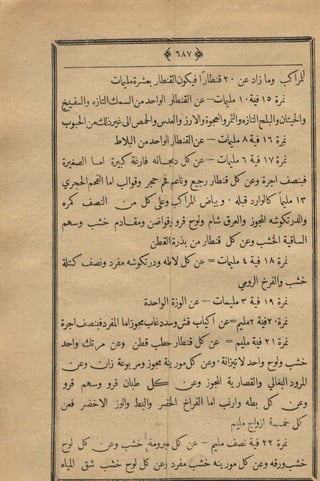 ﴿ ٦٨٧ ﴾
المراكب وما زاد عن ٢٠ قنطارا فيكون القنطار بعشرة مليمات
نمرة ١٥ فية ١٠ مليمات – عن القنطار الواحد من السمك التازه والفسيخ
والحيتان والبلح التازه والتمر والعجوة والارز والعدس والحمص الى غير ذلك من الحبوب
نمرة ١٦ فية ٨ مليمات – عن القنطار الواحد من البلاط
نمرة ١٧ فية ٦ مليمات – عن كل دمجانه فارغة كبيرة اما الصغيرة
فبنصف اجرة وعن كل قنطار رجيع وناعم فحم حجر وقوالب اما الفحم الحجري
١٣ مليما كالوارد قبله . و بياض المراكب وعلى كل من النصف كره
والدركوشه المجوز والعرق شام ولوح قرو بقواضن ومقادم خشب وسهم
الساقية الخشب وعن كل قنطار من بذرة القطن
نمرة ١٨ فية ٤ مليمات = عن كل لاطه ودركوشه مفرد ونصف كتلة
خشب والفرخ الرومي
نمرة ١٩ فية ٣ مليمات – عن الوزة الواحدة
نمرة ٢٠ فية ٢ مليم – عن اكياب قش وسدد غاب مجوز اما المفرد فبنصف اجرة
نمرة ٢١ فية مليم = عن كل قنطار حطب قطن وعن مرتك واحد
خشب ولوح واحد لاتيزانة . وعن كل مورينة مجوز ومربوعة زان وعن
المرود البغالي والقصارية المجوز وعن كل طبان قرو وسهم قرو
وعن كل بطه وارنب اما الفراخ الخضر والبط والوز الاخضر فعن
كل خمسة ازواج مليم
نمرة ٢٢ فية نصف مليم – عن كل مبرومة خشب وعن كل لوح
خشب ورقه وعن كل مورينه خشب مفرد وعن كل لوح خشب شق المياه